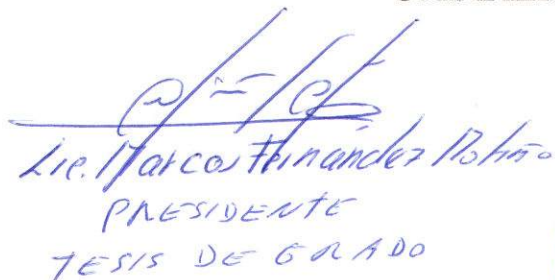 Lic. Marcos Fernández
PRESIDENTE
TESIS DE GRADO